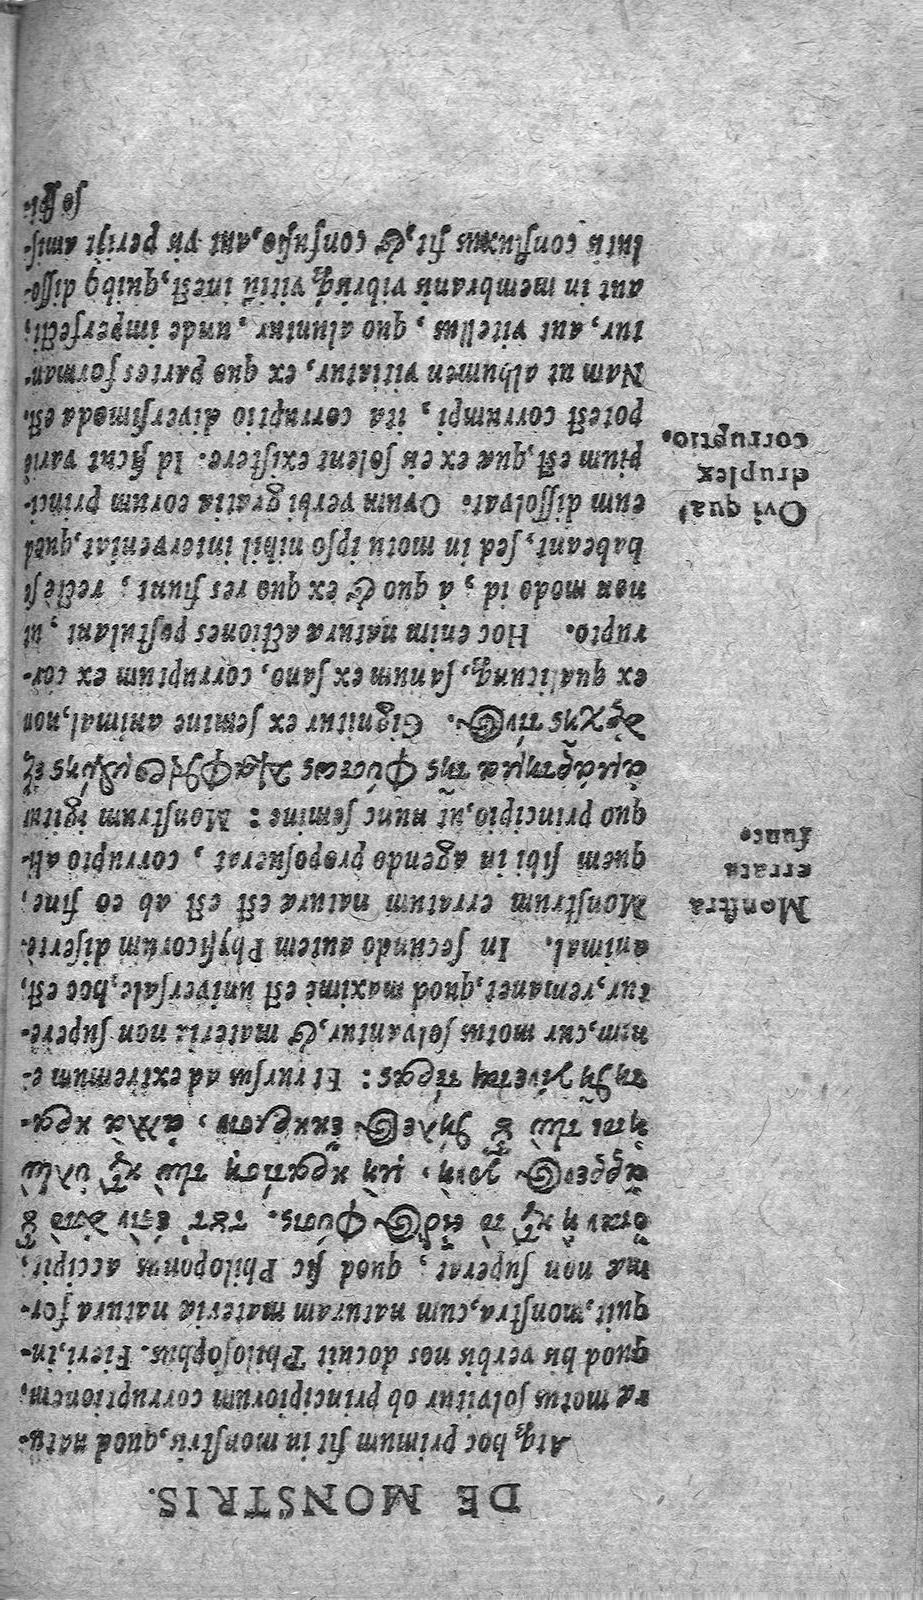 DE MONSTRIS.
Atq; hoc primum fit in monstris, quod natu-
ræ motus solvitur ob principiorum corruptionem,
quod his verbis docuit Philosophus. Fieri, in-
quit, monstra, cum naturam materiæ natura for-
mæ non superat, quod sic Philoponus accipit,
ὅταν ἡ κτ̀ τὸ εἶδος φύσις. τȣτ' ἐστὶν ἀπὸ τȣ͂
ἄῤῥενος γονὴ, μὴ κρατήσῃ τὴν κτ̀ ὕλην
τὴν ȣ͂ θήλεος ἔκκρισιν, ἀλλὰ κρα-
τηθῇ γίνεται τέρας: Et rursus ad extremum e-
nim, cur motus solvantur, & materia non supere-
tur, remanet, quod maximè est universale, hoc est,
animal. In secundo autem Physicorum disertè.
Monstrum erratum naturæ est est ab eo fine,
quem sibi in agendo proposuerat, corrupto ali-
quo principio, ut nunc semine: Monstrum igitur
ἁμάρτημα τῆς φύσεως διαφθειρομένης ἐξ
ἀρχῆς τινός. Gignitur ex semine animal, non
ex qualicunq;, sanum ex sano, corruptum ex cor-
rupto. Hoc enim naturæ actiones postulant, ut
non modo id, à quo & ex quo res fiunt, rectè se
habeant, sed in motu ipso nihil interveniat, quod
eum dissolvat. Ovum verbi gratia eorum princi-
pium est, quæ ex eis solent existere. Id sicut variè
potest corrumpi, ita corruptio diversimoda est.
Nam ut albumen vitiatur, ex quo partes forman-
tur, aut vitellus, quo aluntur, unde imperfecti,
aut in membranis vibrisq; vitiũ inest, quibꝰ disso-
lutis confluxus fit, & confusio, aut vis perijt amis-
so spi-
Monstra
errata
sunt.
Ovi qua-
druplex
corruptio.